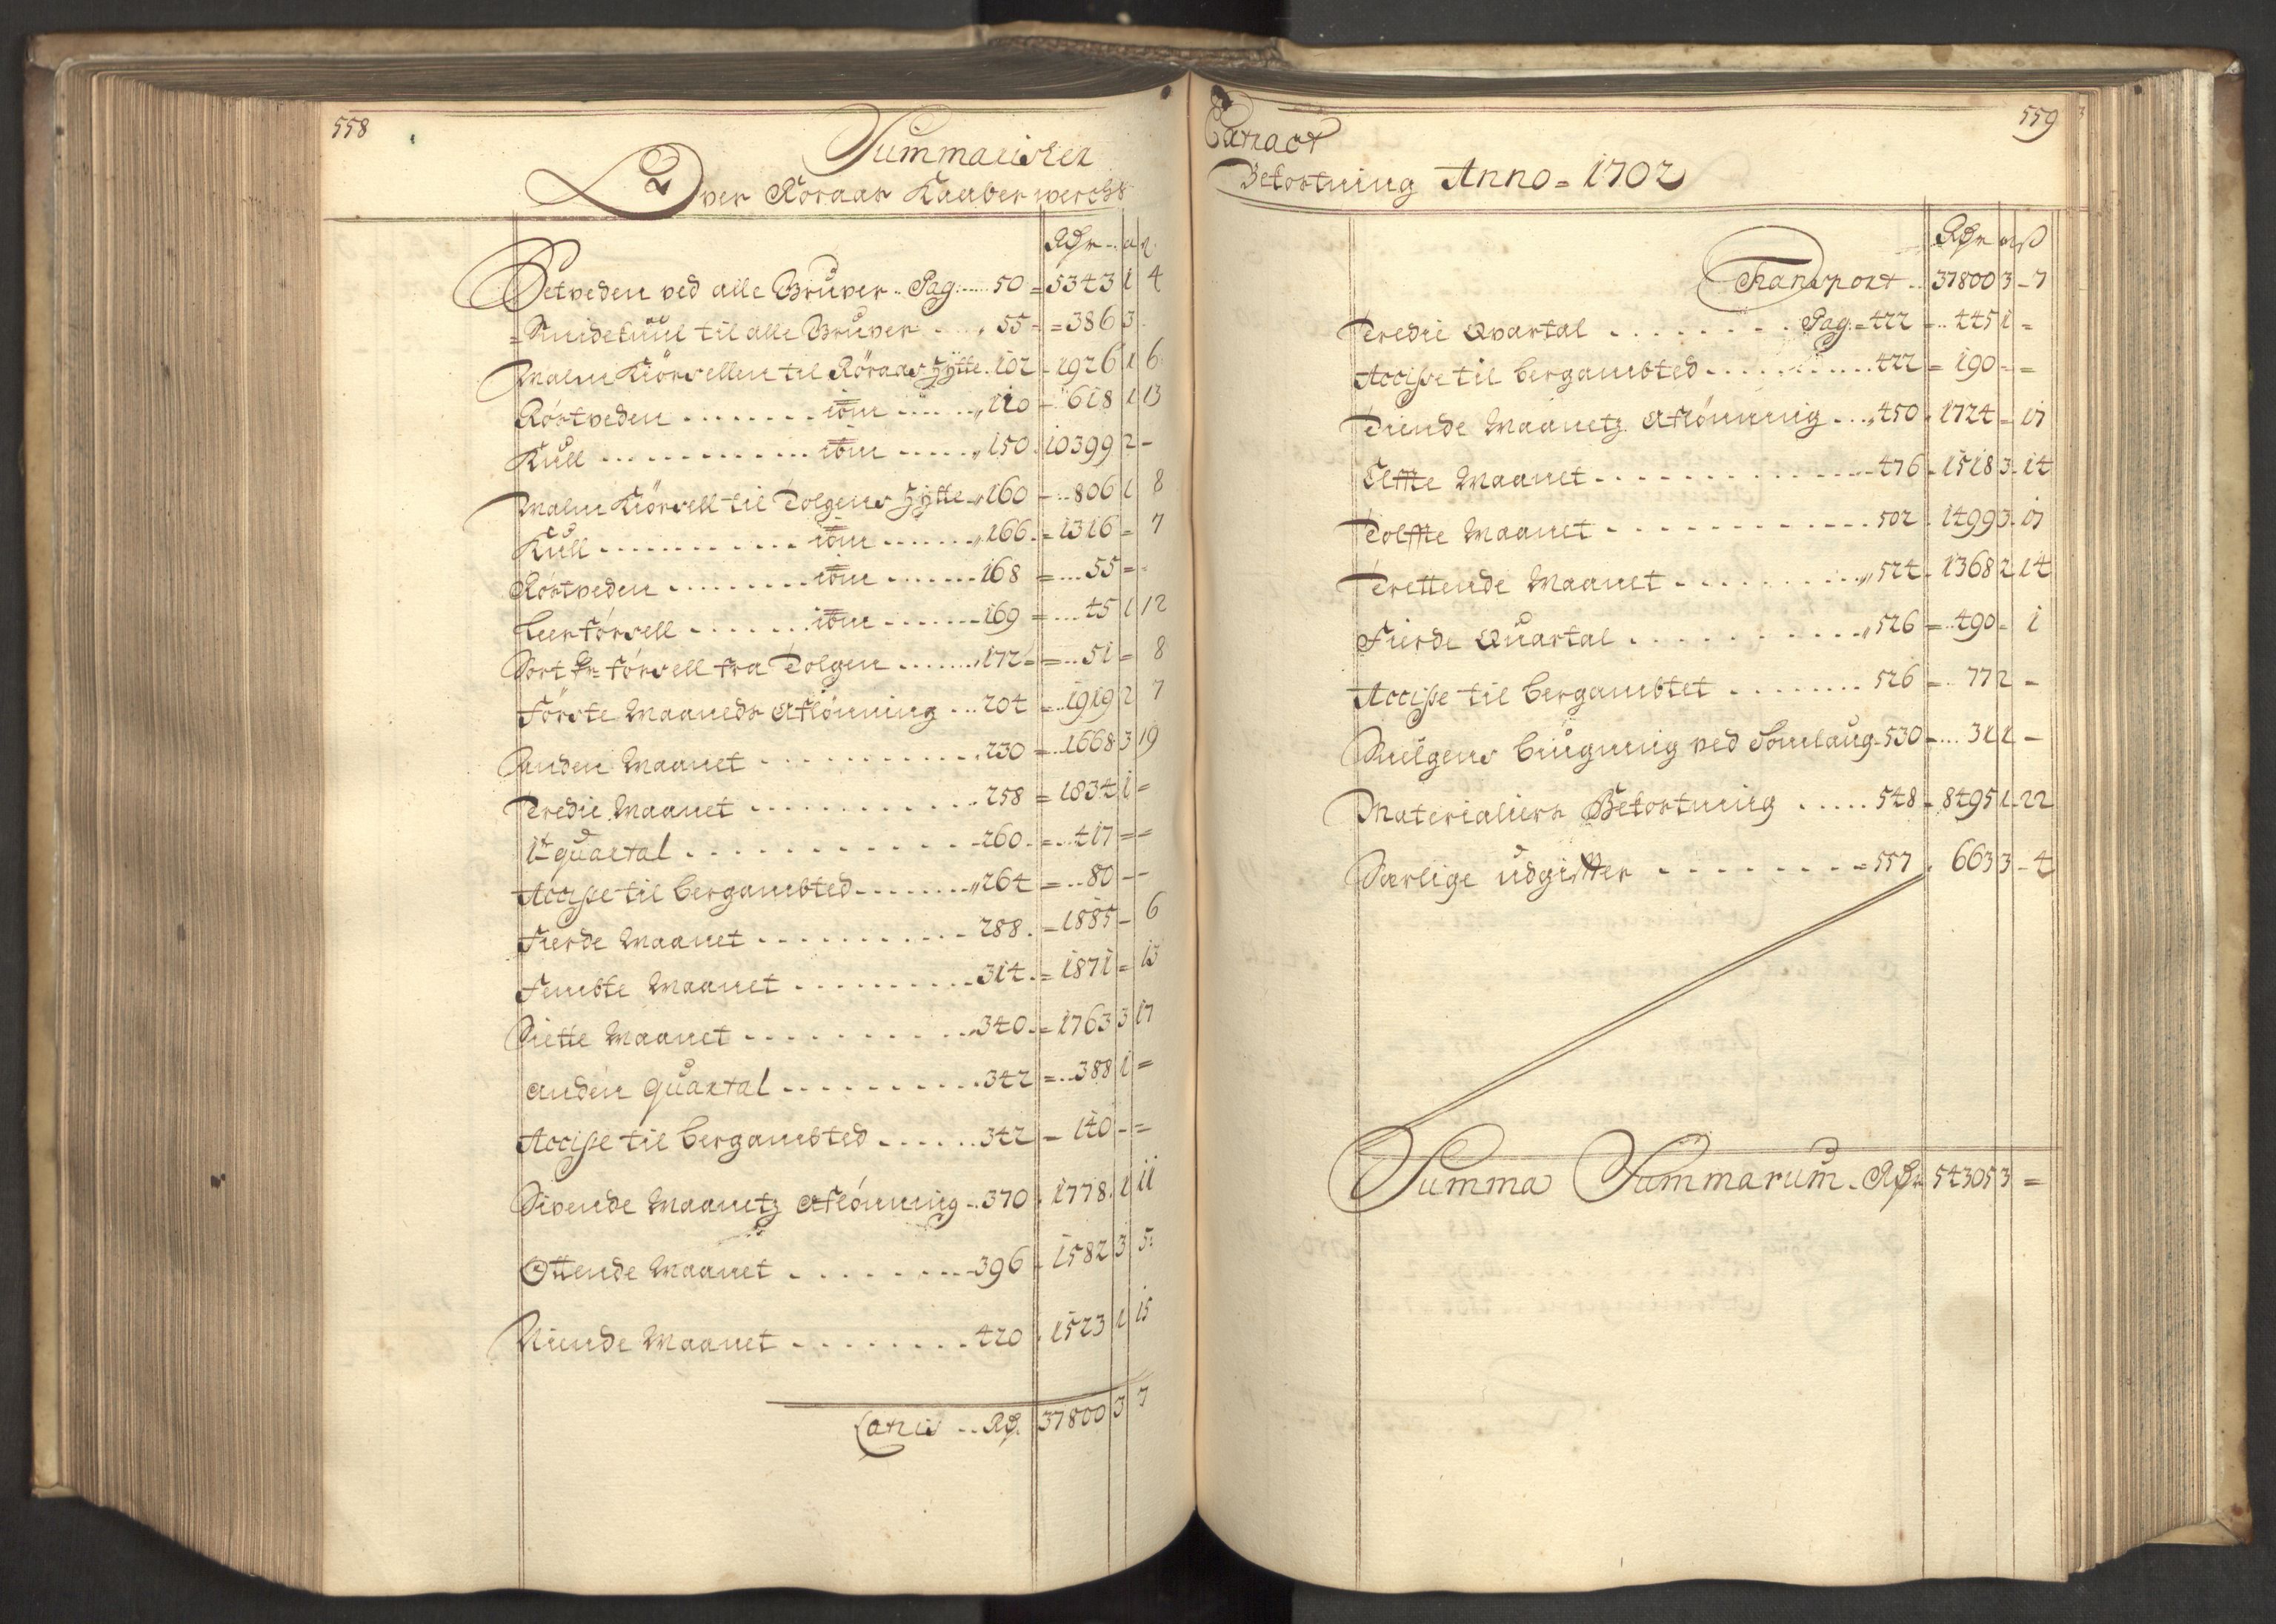 558
Summarisker
Over Röraas Kaaberwerchs
Rdr ort s
Setveden ved alle Gruver .. Pag: ..... 50 = 5343 1 4
Smidekuul til alle Gruver .... 55 = 386 3
Malm Kiörsellen til Röraas Hytte . 102 - 1926 1 6
Röstveden ........ ibm ...... 110 - 618 1 13
Kull ............ ibm ..... 150 . 10399 2 -
Malm Kiörsell til Tolgens Hytte 160 - .. 806 1 8
Kull ........... ibm ...... 166 . = 1316 = 7
Röstveden ........ ibm ....... 168 = ... 55 = -
Leerförsell ....... ibm ....... 169 = .... 45 1 12
Sort Kr försell fra Tolgen ...... 172 = = .. 51 = 8
Förste Maaneds Aflönning ... 204 = .. 1919 2 7
Anden Maanet ........... 230 = .. 1668 3 19
Tredie Maanet ........... 258 = 1834 1 =
1te quartal ............. 260 . = .. 417 = =
Accisse til bergambted ........ 264 = .. 80 - -
Fierde Maanet .......... 288 . = 1885 - 6
Fembte Maanet .......... 314 . = 1871 = 13
Siette Maanet .......... 340 . = 1763 3 17
anden quartal .......... 342 = .. 388 1 =
Accisse til bergambted ...... 342 = 140 - =
Sivende Maanetz Aflönning .. 370 . 1778 . 1 11
Ottende Maanet ........ 396 . 1582 3 5
Niende Maanet ........ 420 . 1523 1 15
Latris .. Rd. 37800 3 7
559
Extract
Bekostning Anno = 1702
Rdr ort s
Transport .. 37800 3 - 7
Tredie Qvartal ........ Pag: = 422 - .. 445 1 =
Accisse til bergambted .......... 422 = 190 - =
Tiende Maanetz Aflönning ... 450 . 1724 = 17
Elffte Maanet ............ 476 . 1518 3 . 14
Tolffte Maanet ............ 502 . 1499 3 . 17
Trettende Maanet .......... 524 . 1368 2 14
Fierde Quartal ........... 526 = .. 490 = 1
Accisse til bergambtet ........ 526 = .. 77 2 =
bÿgning ved Somlaug . 530 = ... 31 1 -
Materialiers Bekostning ..... 548 = 8495 1 - 22
Særlige udgiffter ........ = 557 . 663 3 - 4
Summa Summarum . Rdr 54305 3 =